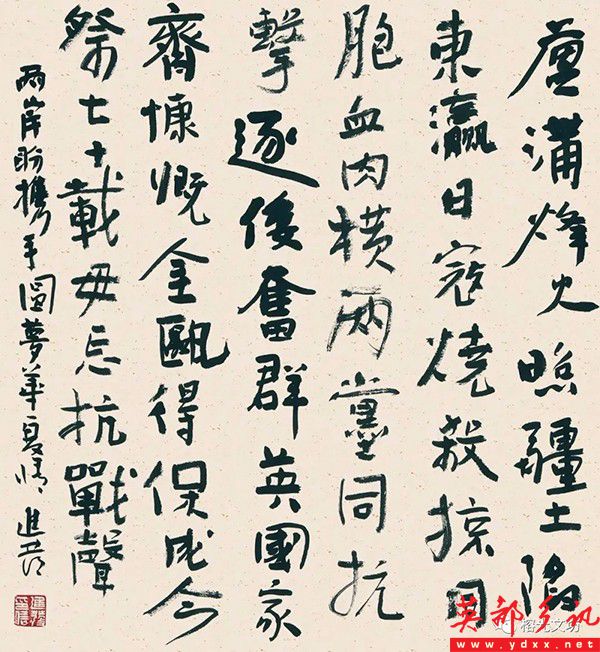 蘆溝烽火照疆土陷
東瀛日寇燒殺掠同
胞血肉橫兩黨同抗
擊逐後奮群英國家
齊慷慨金甌得保成今
祭七十載毋忘抗戰聲
兩岸盼攜手圓夢華夏情 進
文坊
英都乡讯
www.ydxx.net